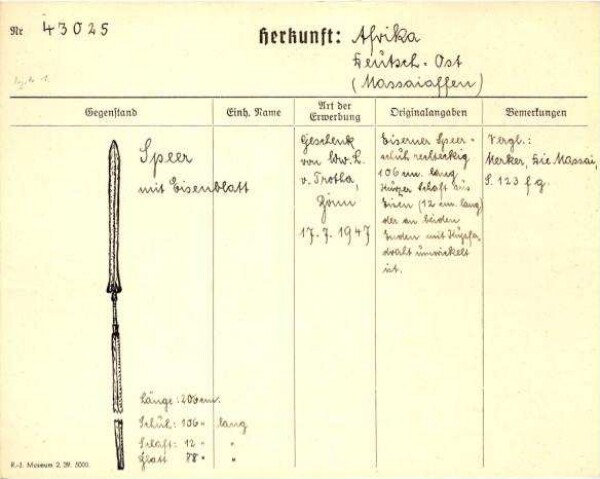 Nr 43025
Herkunft: Afrika
Deutsch-Ost
(Massaiaffen)
Gegenstand
Einh. Name
Art der Erwerbung
Originalangaben
Bemerkungen
Speer
mit Eisenblatt
Länge: 206 cm.
Schuh: 106 " lang
Schaft: 12 " "
Blatt 88 " "
Geschenk
von Ww. L.
v. Trotha,
Bonn
17.7.1947
Eiserner Speer-
schuh, rechteckig
106 cm. lang
Kurzer Schaft aus
Eisen (12 cm. lang)
der an beiden
Enden mit Kupfer-
draht umwickelt
ist.
Vergl.:
Merker, Die Massai,
S. 123 f g.
R.-J. Museum 2. 39. 5000.